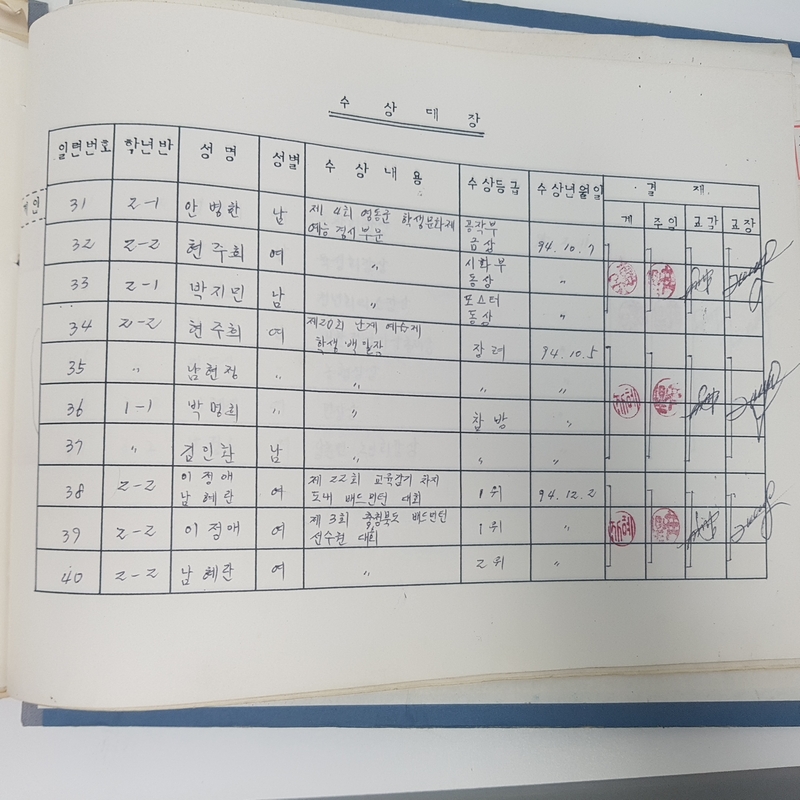 수 상 대 장
일련번호 학년반 성 명 성별 수 상 내 용 수상등급 수상년월일 결 재
계 주임 교감 교장
31 2-1 안병한 남 제 4회 영동군 학생문화제 예능경시부문 공작부 금상 94.10.7
32 2-2 현주희 여 〃 시화부 동상 〃
33 2-1 박지민 남 〃 포스터 동상 〃
34 2-2 현주희 여 제20회 난계예술제 학생 백일장 장려 94.10.5
35 〃 남현정 〃 〃 〃 〃
36 1-1 박명희 〃 〃 참방 〃
37 〃 김인환 남 〃 〃 〃
38 2-2 이정애 남혜란 여 제 22회 교육감기 차지 도내 배드민턴 대회 1위 94.12.2
39 2-2 이정애 여 제 3회 충청북도 배드민턴 선수권 대회 1위 〃
40 2-2 남혜란 여 〃 2위 〃